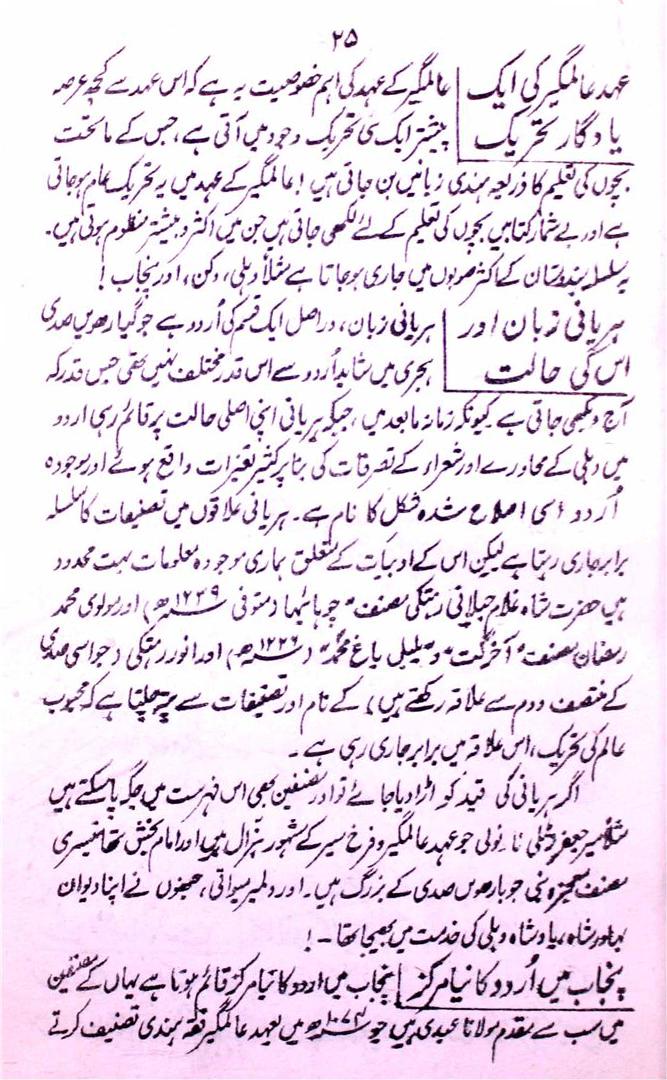 ۲۵
عہد عالمگیر کی ایک
یادگار تحریک
عالمگیر کے عہد کی اہم خصوصیت یہ ہے کہ اس عہد سے کچھ عرصہ
پیشتر ایک نئی تحریک وجود میں آتی ہے، جس کے ماتحت
بچوں کی تعلیم کا ذریعہ ہندی زبانیں بن جاتی ہیں! عالمگیر کے عہد میں یہ تحریک عام ہو جاتی
ہے اور بے شمار کتابیں بچوں کی تعلیم کے لئے لکھی جاتی ہیں جن میں اکثر و بیشتر منظوم ہوتی ہیں۔
یہ سلسلہ ہندوستان کے اکثر صوبوں میں جاری ہو جاتا ہے مثلاً دہلی، دکن، اور پنجاب!
ہریانی زبان اور
اس کی حالت
ہریانی زبان، دراصل ایک قسم کی اُردو ہے جو گیارھویں صدی
ہجری میں شاید اُردو سے اس قدر مختلف نہیں تھی جس قدر کہ
آج دیکھی جاتی ہے کیونکہ زمانہ مابعد میں، جبکہ ہریانی اپنی اصلی حالت پر قائم رہی اردو
میں دہلی کے محاورے اور شعراء کے تصرفات کی بنا پر کثیر تغیرات واقع ہوئے اور موجودہ
اُردو اسی اصلاح شدہ شکل کا نام ہے۔ ہریانی علاقوں میں تصنیفات کا سلسلہ
برابر جاری رہتا ہے لیکن اس کے ادبیات کے متعلق ہماری موجودہ معلومات بہت محدود
ہیں حضرت شاہ غلام جیلانی رہتکی مصنف "چوہا نہا (متوفی ۱۲۳۹ھ) اور مولوی محمد
رمضان مصنف "آخر گت" و "بلبل باغ محمد" (۱۲۲۶ھ) اور انور رہتکی (جو اسی صدی
کے منتصف دوم سے علاقہ رکھتے ہیں) کے نام اور تصنیفات سے پتہ چلتا ہے کہ محبوب
عالم کی تحریک، اس علاقہ میں برابر جاری رہی ہے۔
اگر ہریانی کی قید کو اڑا دیا جائے تو اور مصنفین بھی اس فہرست میں جگہ پا سکتے ہیں
مثلاً میر جعفر زٹلی نارنولی جو عہد عالمگیر و فرخ سیر کے مشہور ہزال ہیں اور امام بخش تھانیسری
مصنف معجزہ نبی جو بارھویں صدی کے بزرگ ہیں۔ اور دلمیر میواتی، جنھوں نے اپنا دیوان
بہادر شاہ، بادشاہ دہلی کی خدمت میں بھیجا تھا۔!
پنجاب میں اُردو کا نیا مرکز
پنجاب میں اردو کا نیا مرکز قائم ہوتا ہے یہاں کے مصنفین
میں سب سے مقدم مولانا عبدی ہیں جو ۱۰۷۴ھ میں بعہد عالمگیر فقہ ہندی تصنیف کرتے